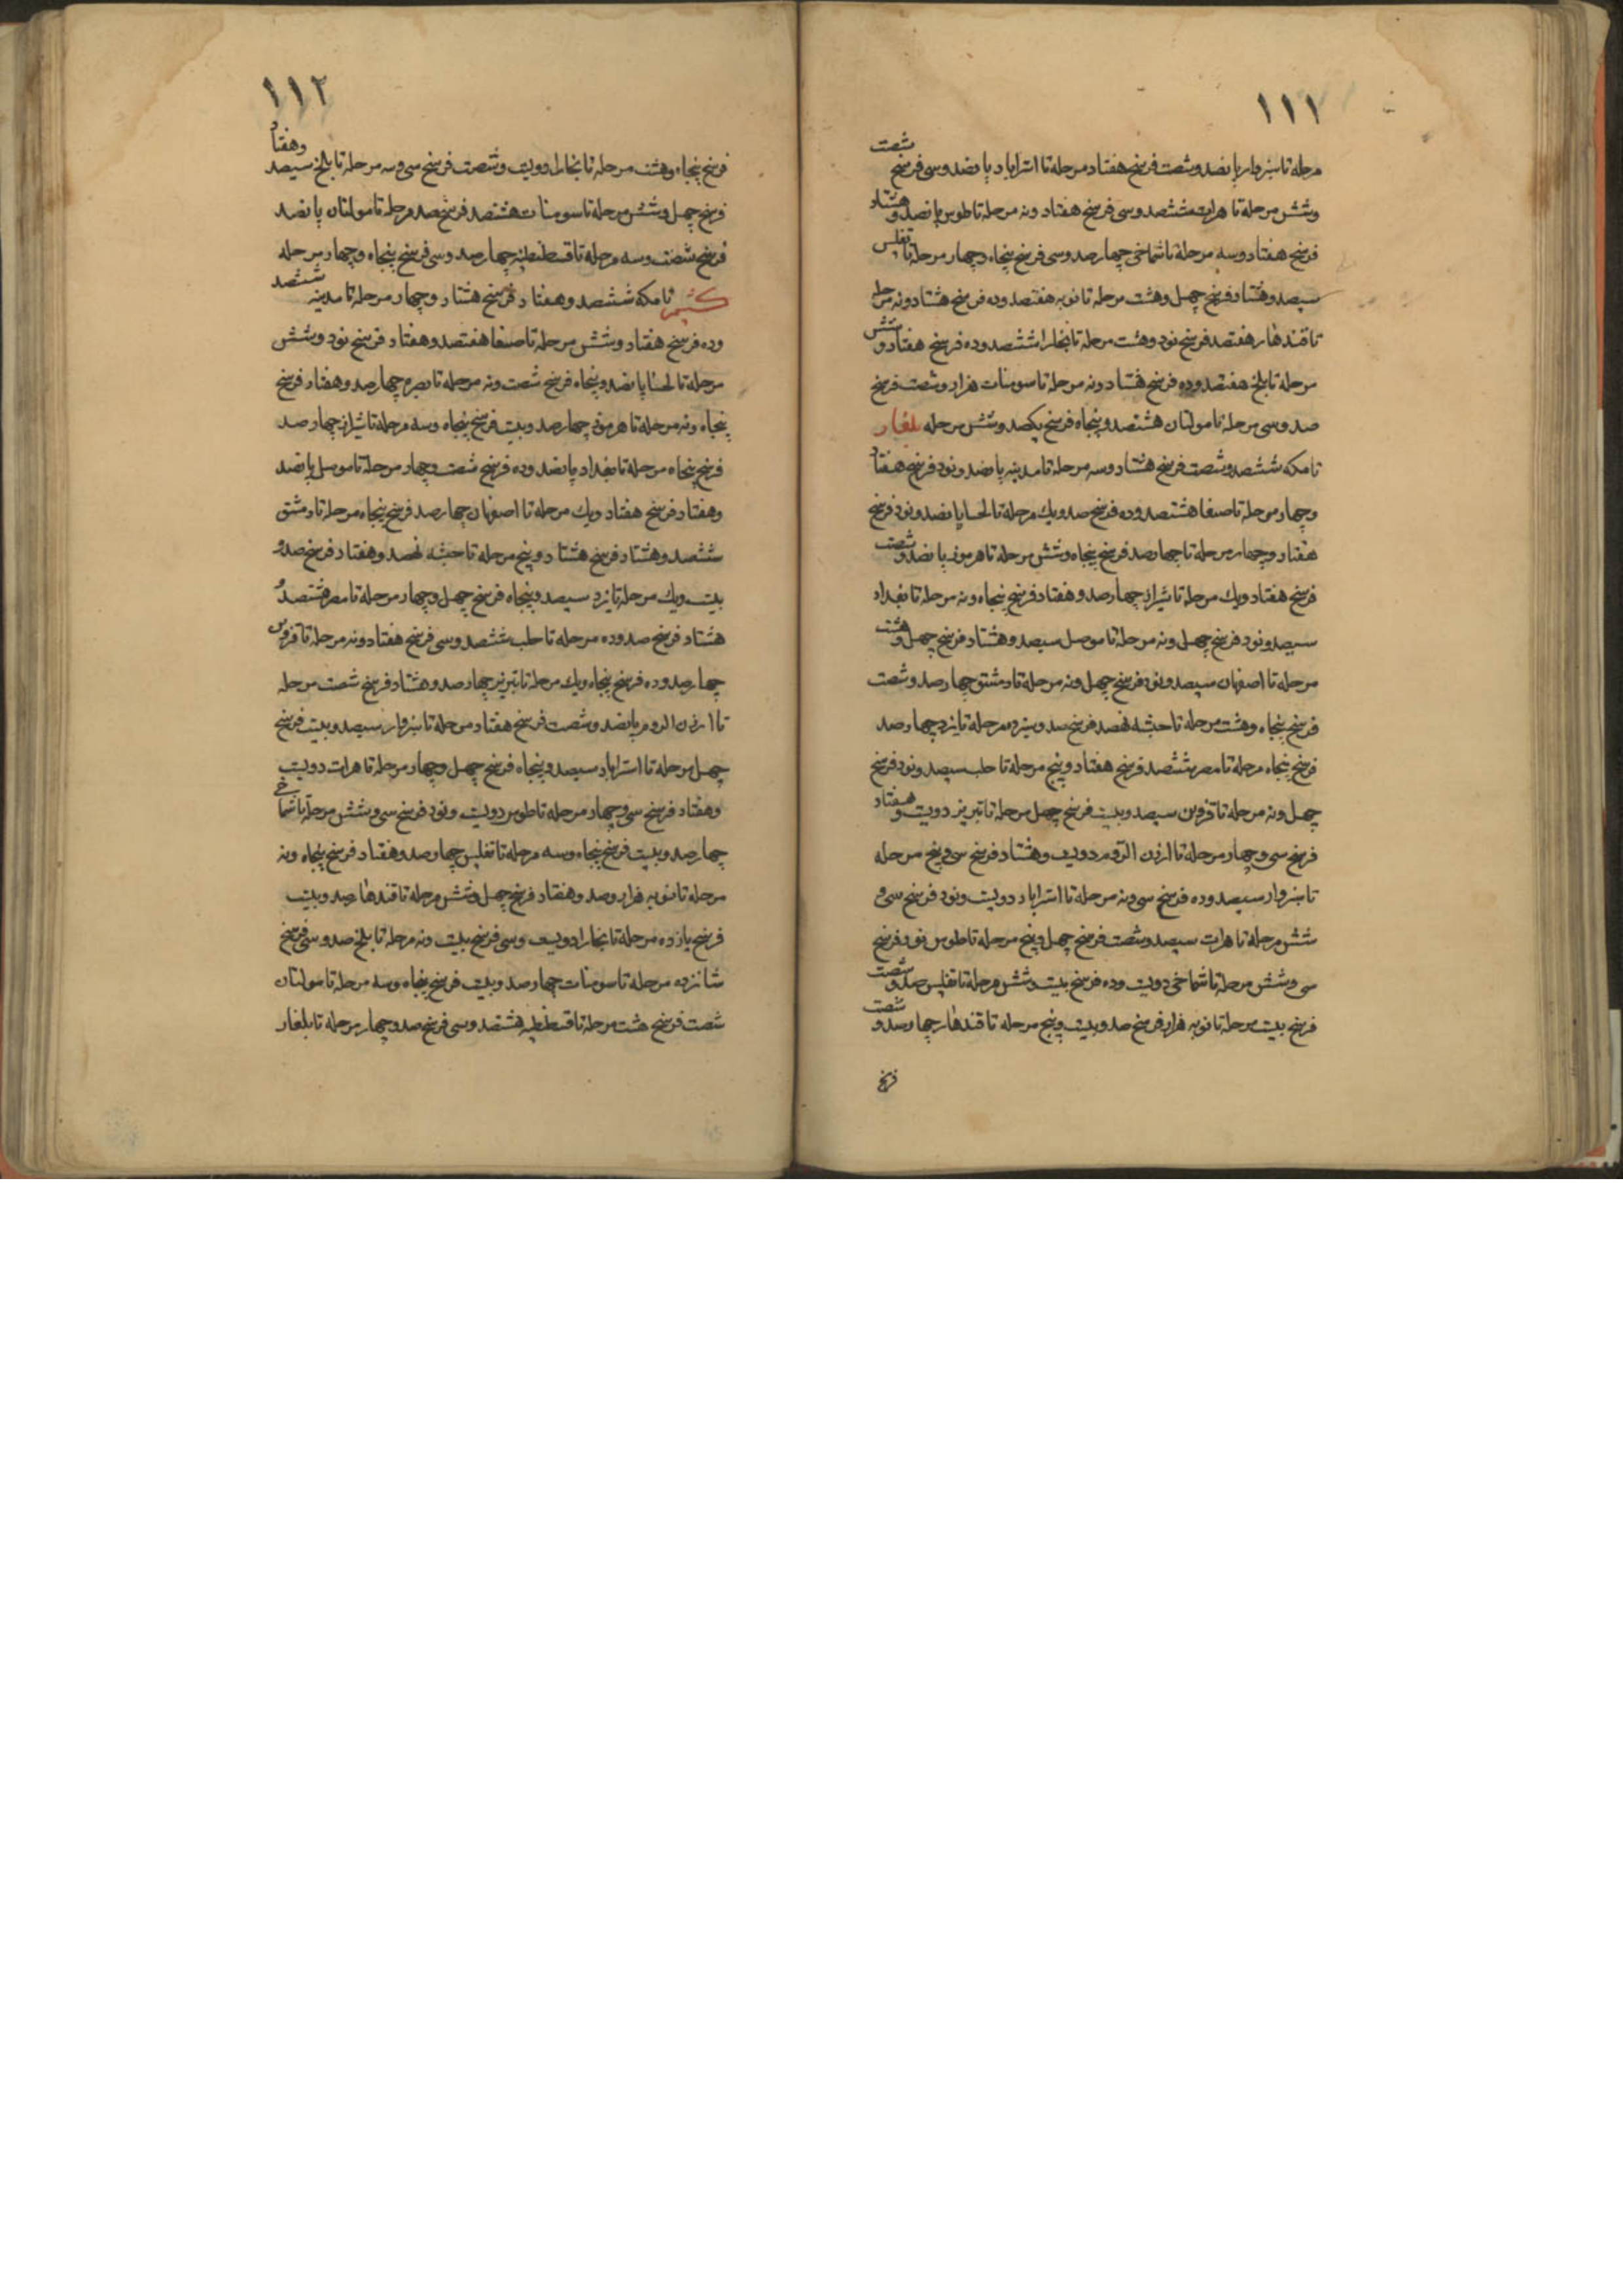 ۱۱۱
مرحله تا سبزوار پانصد و شصت فرسخ هفتاد مرحله تا استراباد پانصد و سی فرسخ شصت
و شش مرحله تا هرات ششصد و سی فرسخ هفتاد و نه مرحله تا طوس پانصد و هشتاد
فرسخ هفتاد و سه مرحله تا شماخی چهارصد و سی فرسخ پنجاه و چهار مرحله تا تفلیس
سیصد و هشتاد فرسخ چهل و هشت مرحله تا نوبه هفتصد و ده فرسخ هشتاد و نه مرحله
تا قندهار هفتصد فرسخ نود و هشت مرحله تا بخارا ششصد و ده فرسخ هفتاد و شش
مرحله تا بلخ هفتصد و ده فرسخ هشتاد و نه مرحله تا سومنات هزار و شصت فرسخ
صد و سی مرحله تا مولتان هشتصد و پنجاه فرسخ یکصد و شش مرحله بلغار
تا مکه ششصد و شصت فرسخ هشتاد و سه مرحله تا مدینه پانصد و نود فرسخ هفتاد
و چهار مرحله تا صنعا هشتصد و ده فرسخ صد و یک مرحله تا لحسا پانصد و نود فرسخ
هفتاد و چهار مرحله تا چهارصد فرسخ پنجاه و شش مرحله تا هرموز پانصد و شصت
فرسخ هفتاد و یک مرحله تا شیراز چهارصد و هفتاد فرسخ پنجاه و نه مرحله تا بغداد
سیصد و نود فرسخ چهل و نه مرحله تا موصل سیصد و هشتاد فرسخ چهل و هشت
مرحله تا اصفهان سیصد و نود فرسخ چهل و نه مرحله تا دمشق چهارصد و شصت
فرسخ پنجاه و هشت مرحله تا حبشه نهصد فرسخ صد و سیزده مرحله تا یزد چهارصد
فرسخ پنجاه مرحله تا مصر ششصد فرسخ هفتاد و پنج مرحله تا حلب سیصد و نود فرسخ
چهل و نه مرحله تا قزوین سیصد و بیست فرسخ چهل مرحله تا تبریز دویست و هفتاد
فرسخ سی و چهار مرحله تا ارزن الروم دویست و هشتاد فرسخ سی و پنج مرحله
تا سبزوار سیصد و ده فرسخ سی و نه مرحله تا استراباد دویست و نود فرسخ سی و
شش مرحله تا هرات سیصد و شصت فرسخ چهل و پنج مرحله تا طوس نود فرسخ
سی و شش مرحله تا شماخی دویست و ده فرسخ بیست و شش مرحله تا تفلیس صد و شصت
فرسخ بیست مرحله تا نوبه هزار فرسخ صد و بیست و پنج مرحله تا قندهار چهارصد و شصت
فرسخ
۱۱۲
فرسخ پنجاه و هشت مرحله تا بخارا دویست و شصت فرسخ سی و سه مرحله تا بلخ سیصد و هفتاد
فرسخ چهل و شش مرحله تا سومنات هشتصد فرسخ صد مرحله تا مولتان پانصد
فرسخ شصت و سه مرحله تا قسطنطنیه چهارصد و سی فرسخ پنجاه و چهار مرحله
کشمیر تا مکه ششصد و هفتاد فرسخ هشتاد و چهار مرحله تا مدینه ششصد
و ده فرسخ هفتاد و شش مرحله تا صنعا هفتصد و هفتاد فرسخ نود و شش
مرحله تا لحسا پانصد و پنجاه فرسخ شصت و نه مرحله تا بصره چهارصد و هفتاد فرسخ
پنجاه و نه مرحله تا هرموز چهارصد و بیست فرسخ پنجاه و سه مرحله تا شیراز چهارصد
فرسخ پنجاه مرحله تا بغداد پانصد و ده فرسخ شصت و چهار مرحله تا موصل پانصد
و هفتاد فرسخ هفتاد و یک مرحله تا اصفهان چهارصد فرسخ پنجاه مرحله تا دمشق
ششصد و هشتاد فرسخ هشتاد و پنج مرحله تا حبشه نهصد و هفتاد فرسخ صد و
بیست و یک مرحله تا یزد سیصد و پنجاه فرسخ چهل و چهار مرحله تا مصر هشتصد و
هشتاد فرسخ صد و ده مرحله تا حلب ششصد و سی فرسخ هفتاد و نه مرحله تا قزوین
چهارصد و ده فرسخ پنجاه و یک مرحله تا تبریز چهارصد و هشتاد فرسخ شصت مرحله
تا ارزن الروم پانصد و شصت فرسخ هفتاد مرحله تا سبزوار سیصد و بیست فرسخ
چهل مرحله تا استراباد سیصد و پنجاه فرسخ چهل و چهار مرحله تا هرات دویست
و هفتاد فرسخ سی و چهار مرحله تا طوس دویست و نود فرسخ سی و شش مرحله تا شماخی
چهارصد و بیست فرسخ پنجاه و سه مرحله تا تفلیس چهارصد و هفتاد فرسخ پنجاه و نه
مرحله تا نوبه هزار و صد و هفتاد فرسخ چهل و شش مرحله تا قندهار صد و بیست
فرسخ یازده مرحله تا بخارا دویست و سی فرسخ بیست و نه مرحله تا بلخ صد و سی فرسخ
شانزده مرحله تا سومنات چهارصد و بیست فرسخ پنجاه و سه مرحله تا مولتان
شصت فرسخ هشت مرحله تا قسطنطنیه هشتصد و سی فرسخ صد و چهار مرحله تا بلغار